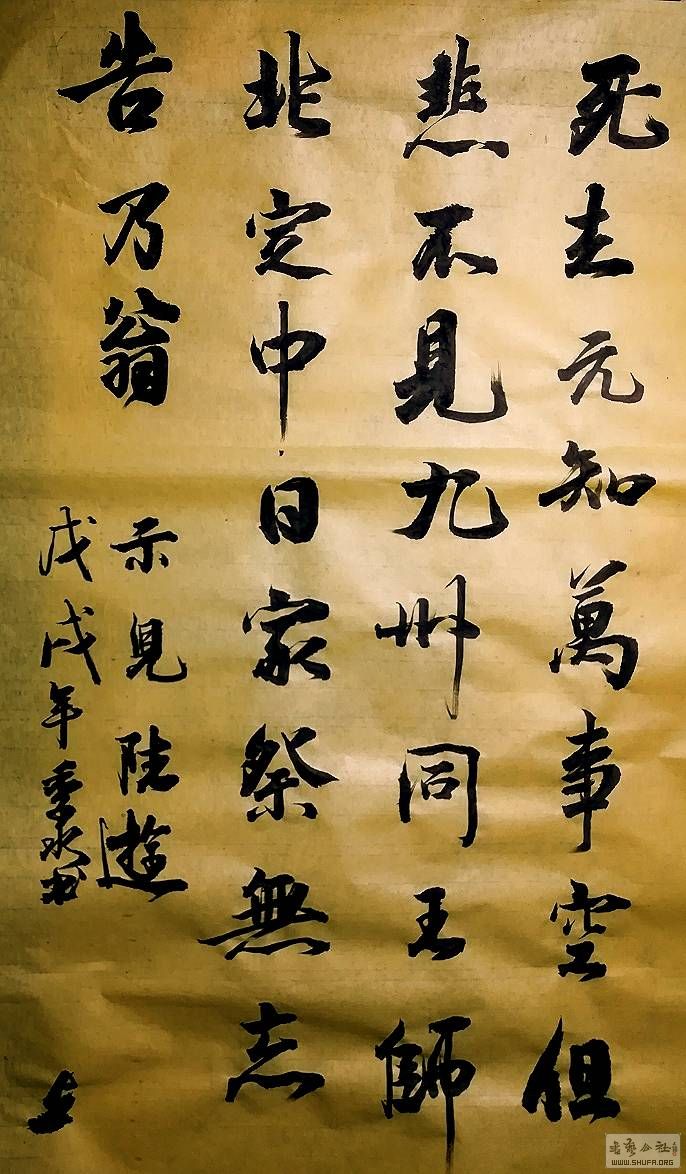 死去元知萬事空但
悲不見九州同王師
北定中日家祭無忘
告乃翁
示兒陸遊
戊戌年
書艺公社
WWW.SHUFA.ORG